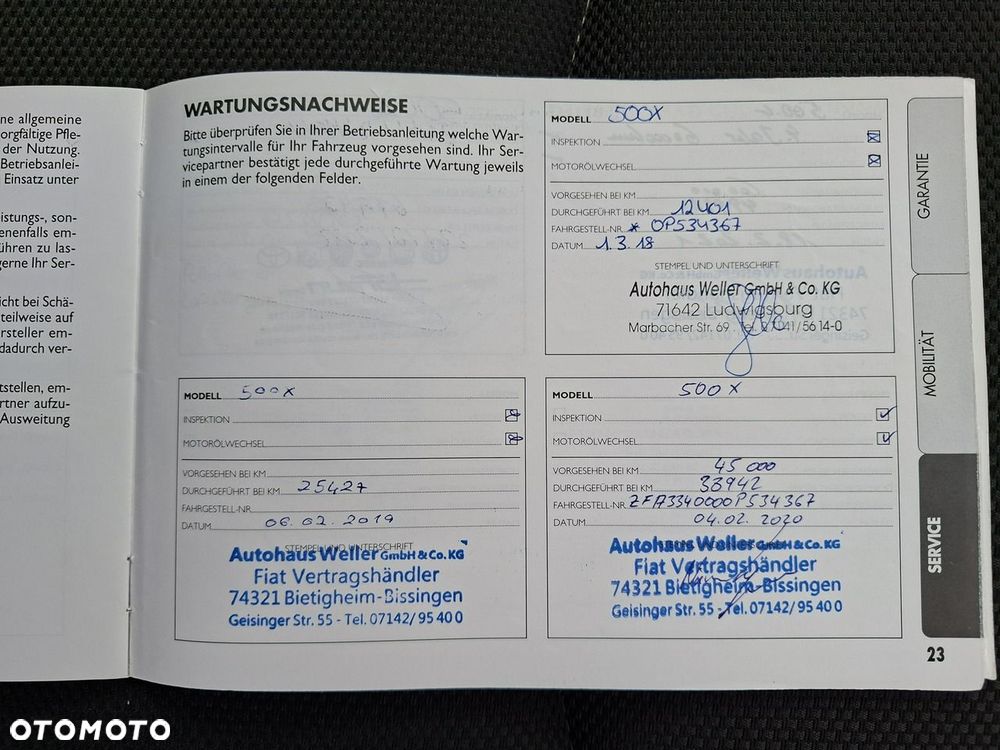 ne allgemeine
orgfältige Pfle-
der Nutzung.
Betriebsanlei-
Einsatz unter
istungs-, son-
enenfalls em-
ühren zu las-
gerne Ihr Ser-
icht bei Schä-
teilweise auf
ersteller em-
dadurch ver-
tstellen, em-
rtner aufzu-
Ausweitung
WARTUNGSNACHWEISE
Bitte überprüfen Sie in Ihrer Betriebsanleitung welche War-
tungsintervalle für Ihr Fahrzeug vorgesehen sind. Ihr Ser-
vicepartner bestätigt jede durchgeführte Wartung jeweils
in einem der folgenden Felder.
MODELL 500X
INSPEKTION
MOTORÖLWECHSEL
VORGESEHEN BEI KM
DURCHGEFÜHRT BEI KM 12401
FAHRGESTELL-NR. * OP534367
DATUM 1.3.18
STEMPEL UND UNTERSCHRIFT
Autohaus Weller GmbH & Co. KG
71642 Ludwigsburg
Marbacher Str. 69 Tel. 07141/56 14-0
MODELL 500X
INSPEKTION
MOTORÖLWECHSEL
VORGESEHEN BEI KM
DURCHGEFÜHRT BEI KM 25427
FAHRGESTELL-NR.
DATUM 06.02.2019
STEMPEL UND UNTERSCHRIFT
Autohaus Weller GmbH & Co. KG
Fiat Vertragshändler
74321 Bietigheim-Bissingen
Geisinger Str. 55 - Tel. 07142/ 95 40 0
MODELL 500X
INSPEKTION
MOTORÖLWECHSEL
VORGESEHEN BEI KM 45 000
DURCHGEFÜHRT BEI KM 33942
FAHRGESTELL-NR. ZFA3340000P534367
DATUM 04.02.2020
Autohaus Weller GmbH & Co. KG
Fiat Vertragshändler
74321 Bietigheim-Bissingen
Geisinger Str. 55 - Tel. 07142/ 95 40 0
GARANTIE
MOBILITÄT
SERVICE
23
OTOMOTO